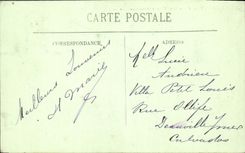 CARTE POSTALE
CORRESPONDANCE
ADRESSE
Meilleurs Souvenirs
Melle Lucie
Andrieu
Villa Petit Louis
Rue
Deauville
Calvados